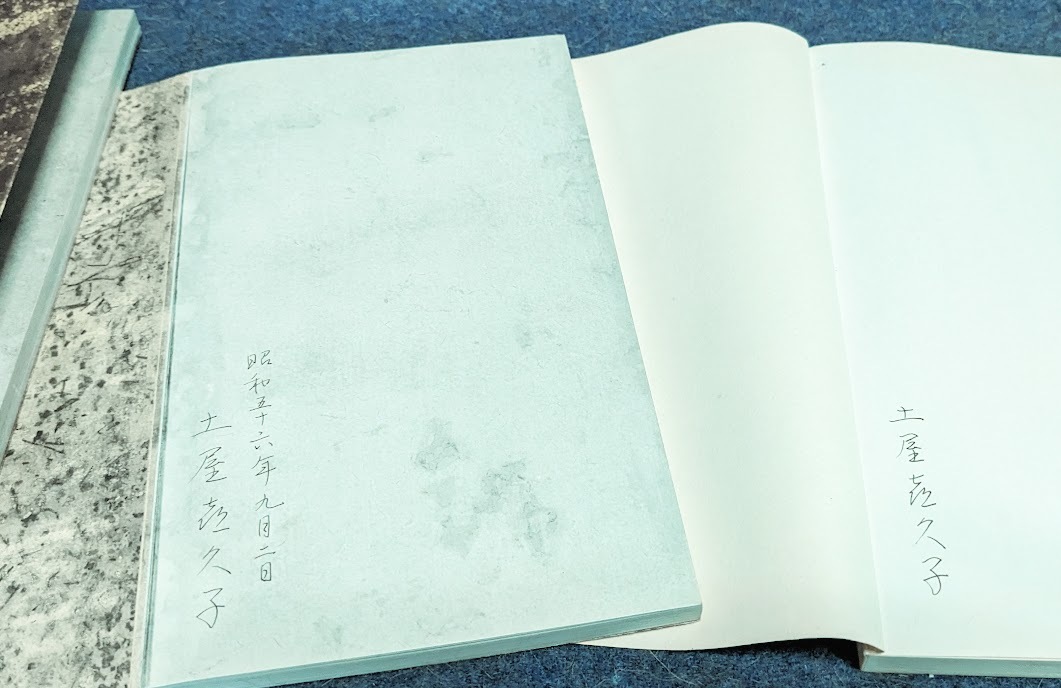 昭和五十六年九月二日
土屋喜久子
土屋喜久子